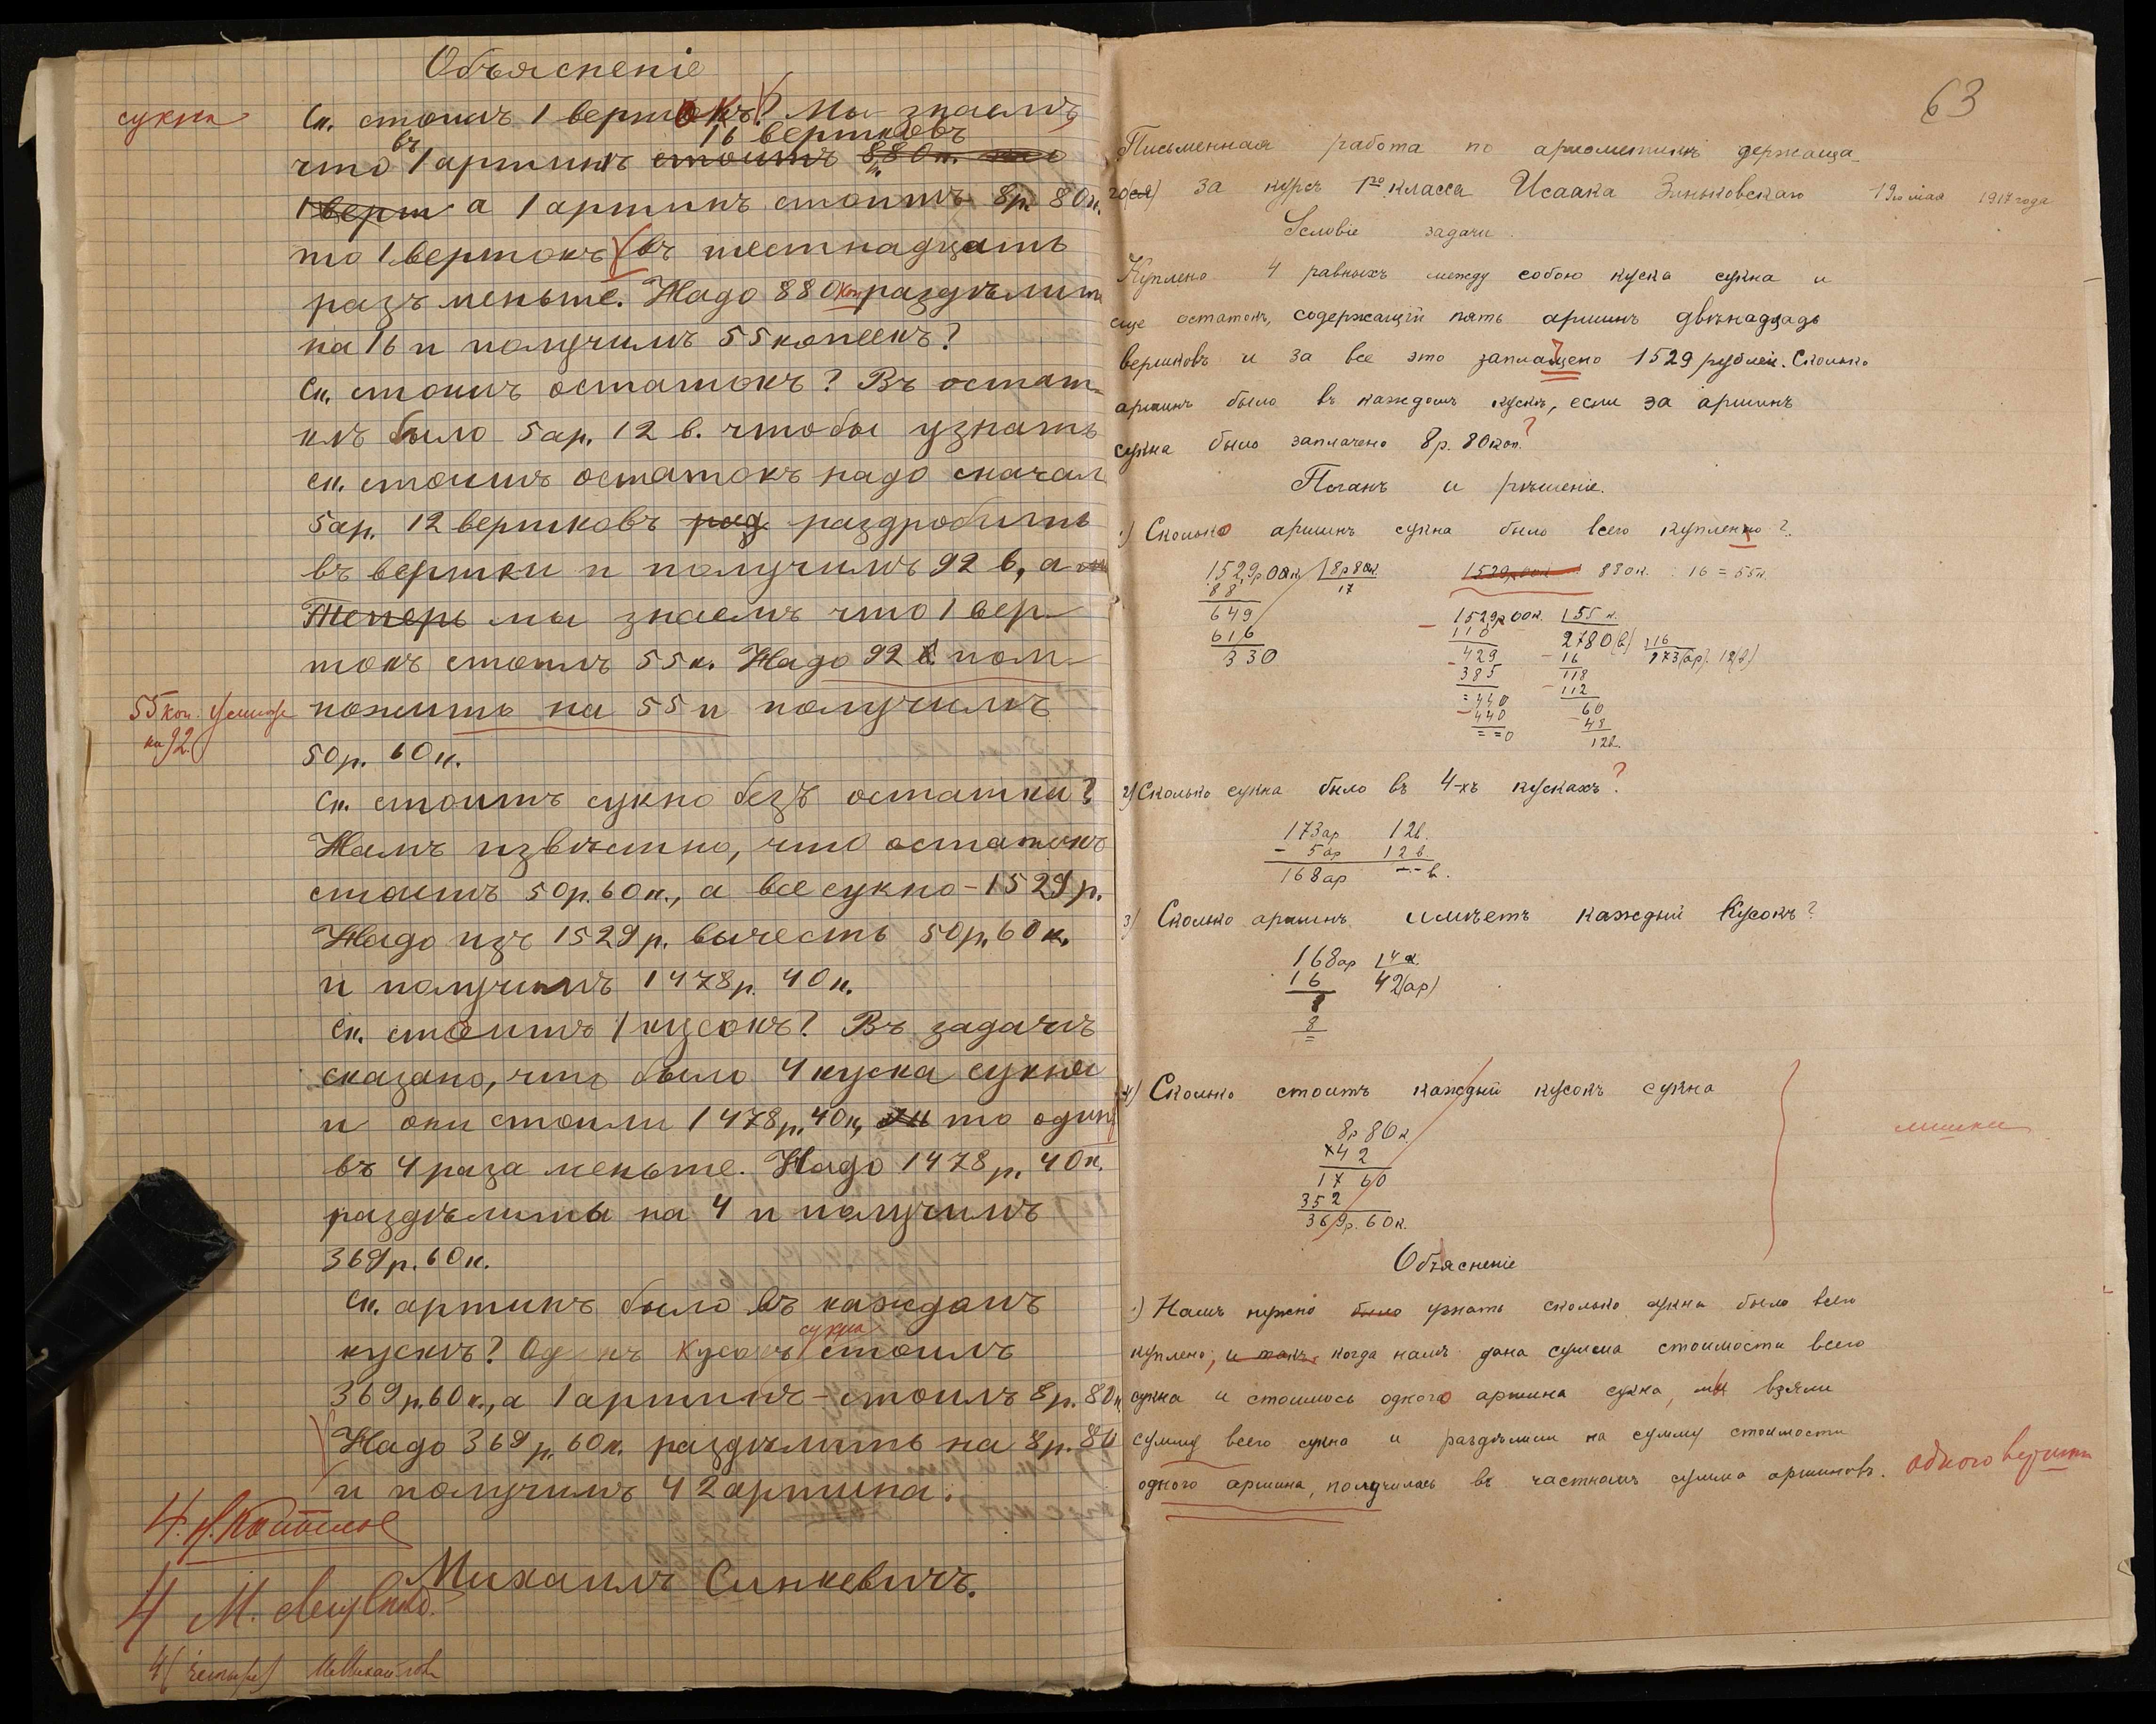 Объясненіе
сукна
Ск. стоитъ 1 вершокъ? Мы знаемъ,
16 вершковъ
что въ 1 аршинѣ стоитъ 880к.
1 верш а 1 аршинъ стоитъ 8р. 80к.
то 1 вершокъ въ шестнадцать
разъ меньше. Надо 880 коп раздѣлить
на 16 и получимъ 55 копеекъ?
Ск. стоитъ остатокъ? Въ остат-
кѣ было 5ар. 12 в. чтобы узнать
ск. стоитъ остатокъ надо сначал
5ар. 12 вершковъ разд раздробить
въ вершки и получимъ 92 в, а
Теперь мы знаемъ что 1 вер-
шокъ стоитъ 55к. Надо 92 в. пом-
ножить на 55 и получимъ
55 коп. умнож
на 92.
50р. 60к.
Ск. стоитъ сукно безъ остатка?
Намъ извѣстно, что остатокъ
стоитъ 50р. 60к., а все сукно - 1529р.
Надо изъ 1529р. вычесть 50р. 60к.
и получимъ 1478р. 40к.
Ск. стоитъ 1 кусокъ? Въ задачѣ
сказано, что было 4 куска сукна
и они стоили 1478р. 40к, то одинъ
въ 4 раза меньше. Надо 1478р. 40к.
раздѣлить на 4 и получимъ
369р. 60к.
Ск. аршинъ было въ каждомъ
сукна
кускѣ? Одинъ кусокъ стоитъ
369р. 60к., а 1 аршинъ - стоитъ 8р. 80к
Надо 369р. 60к. раздѣлить на 8р. 80
и получимъ 42 аршина.
4.
Михаилъ Синкевичъ.
4 М.
4 (четыре) М. Михайлова
63
Письменная работа по ариѳметикѣ держаща-
го(ся) за курсъ 1го класса Исаака Зиньковскаго 19го мая 1917 года
Условіе задачи.
Куплено 4 равныхъ между собою куска сукна и
еще остатокъ, содержащій пять аршинъ двѣнадцадь
вершковъ и за все это заплащено 1529 рублей. Сколько
аршинъ было въ каждомъ кускѣ, если за аршинъ
сукна было заплачено 8р. 80коп.?
Планъ и рѣшеніе.
1) Сколько аршинъ сукна было всего купленно?
1529р.00к. 8р80к 1529р.00к. 880к. : 16 = 55к.
88 17
649
616
330
1529р.00к. 55 к.
110 2780(в) 16
429 16 173(ар). 12(в)
385 118
=440 112
440 60
==0 48
12в.
2) Сколько сукна было въ 4-хъ кускахъ?
173ар 12в.
- 5ар 12в.
168ар --в.
3) Сколько аршинъ имѣетъ каждый Кусокъ?
168ар 4к.
16 42(ар)
8
8
=
4) Сколько стоитъ каждый кусокъ сукна
лишнее
8р80к.
×42
17 60
352
369р. 60к.
Объясненіе
1) Намъ нужно было узнать сколько сукна было всего
куплено, и такъ, когда намъ дана сумма стоимости всего
сукна и стоимось одного аршина сукна, мы взяли
сумму всего сукна и раздѣлили на сумму стоимости
одного аршина, получилась въ частномъ сумма аршиновъ. одного вершка